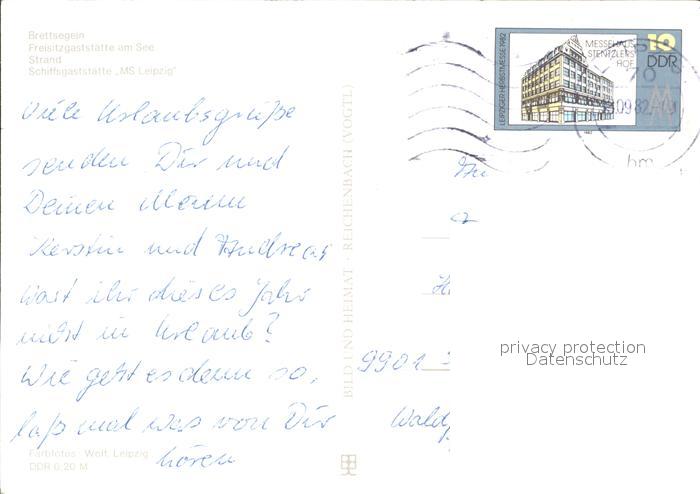 Brettsegeln
Freisitzgaststätte am See
Strand
Schiffsgaststätte „MS Leipzig"
Viele Urlaubsgrüße
senden Dir und
Deinen Mann
Kerstin und Andreas
Wart ihr dieses Jahr
nicht in Urlaub?
Wie geht es denn so,
laß mal was von Dir
hören
Farbfotos: Wolf, Leipzig
DDR 0,20 M
BILD UND HEIMAT · REICHENBACH (VOGTL)
LEIPZIGER HERBSTMESSE 1982
MESSEHAUS
STENTZLERS
HOF
10
DDR
1982
70
09 82
hm
9901
Wald
privacy protection
Datenschutz